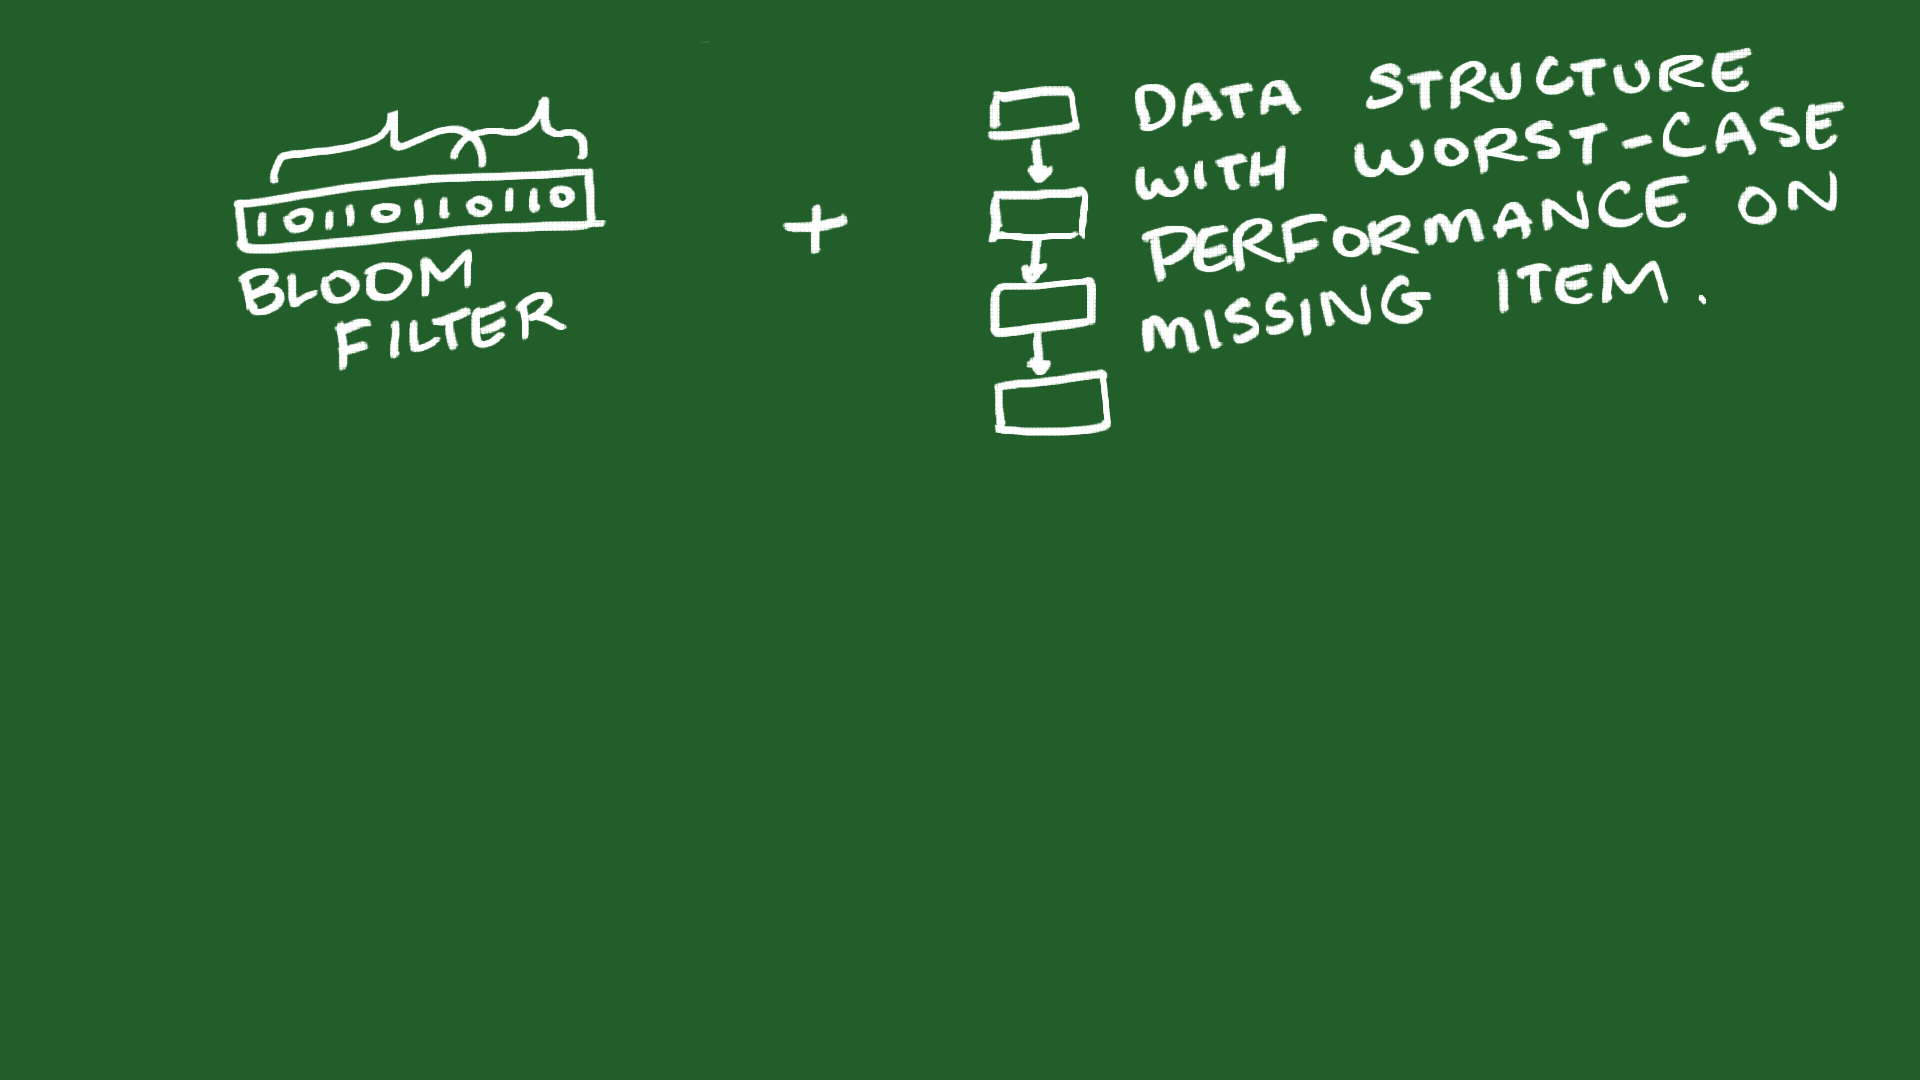 1011011010110
BLOOM
FILTER
+
DATA STRUCTURE
WITH WORST-CASE
PERFORMANCE ON
MISSING ITEM.